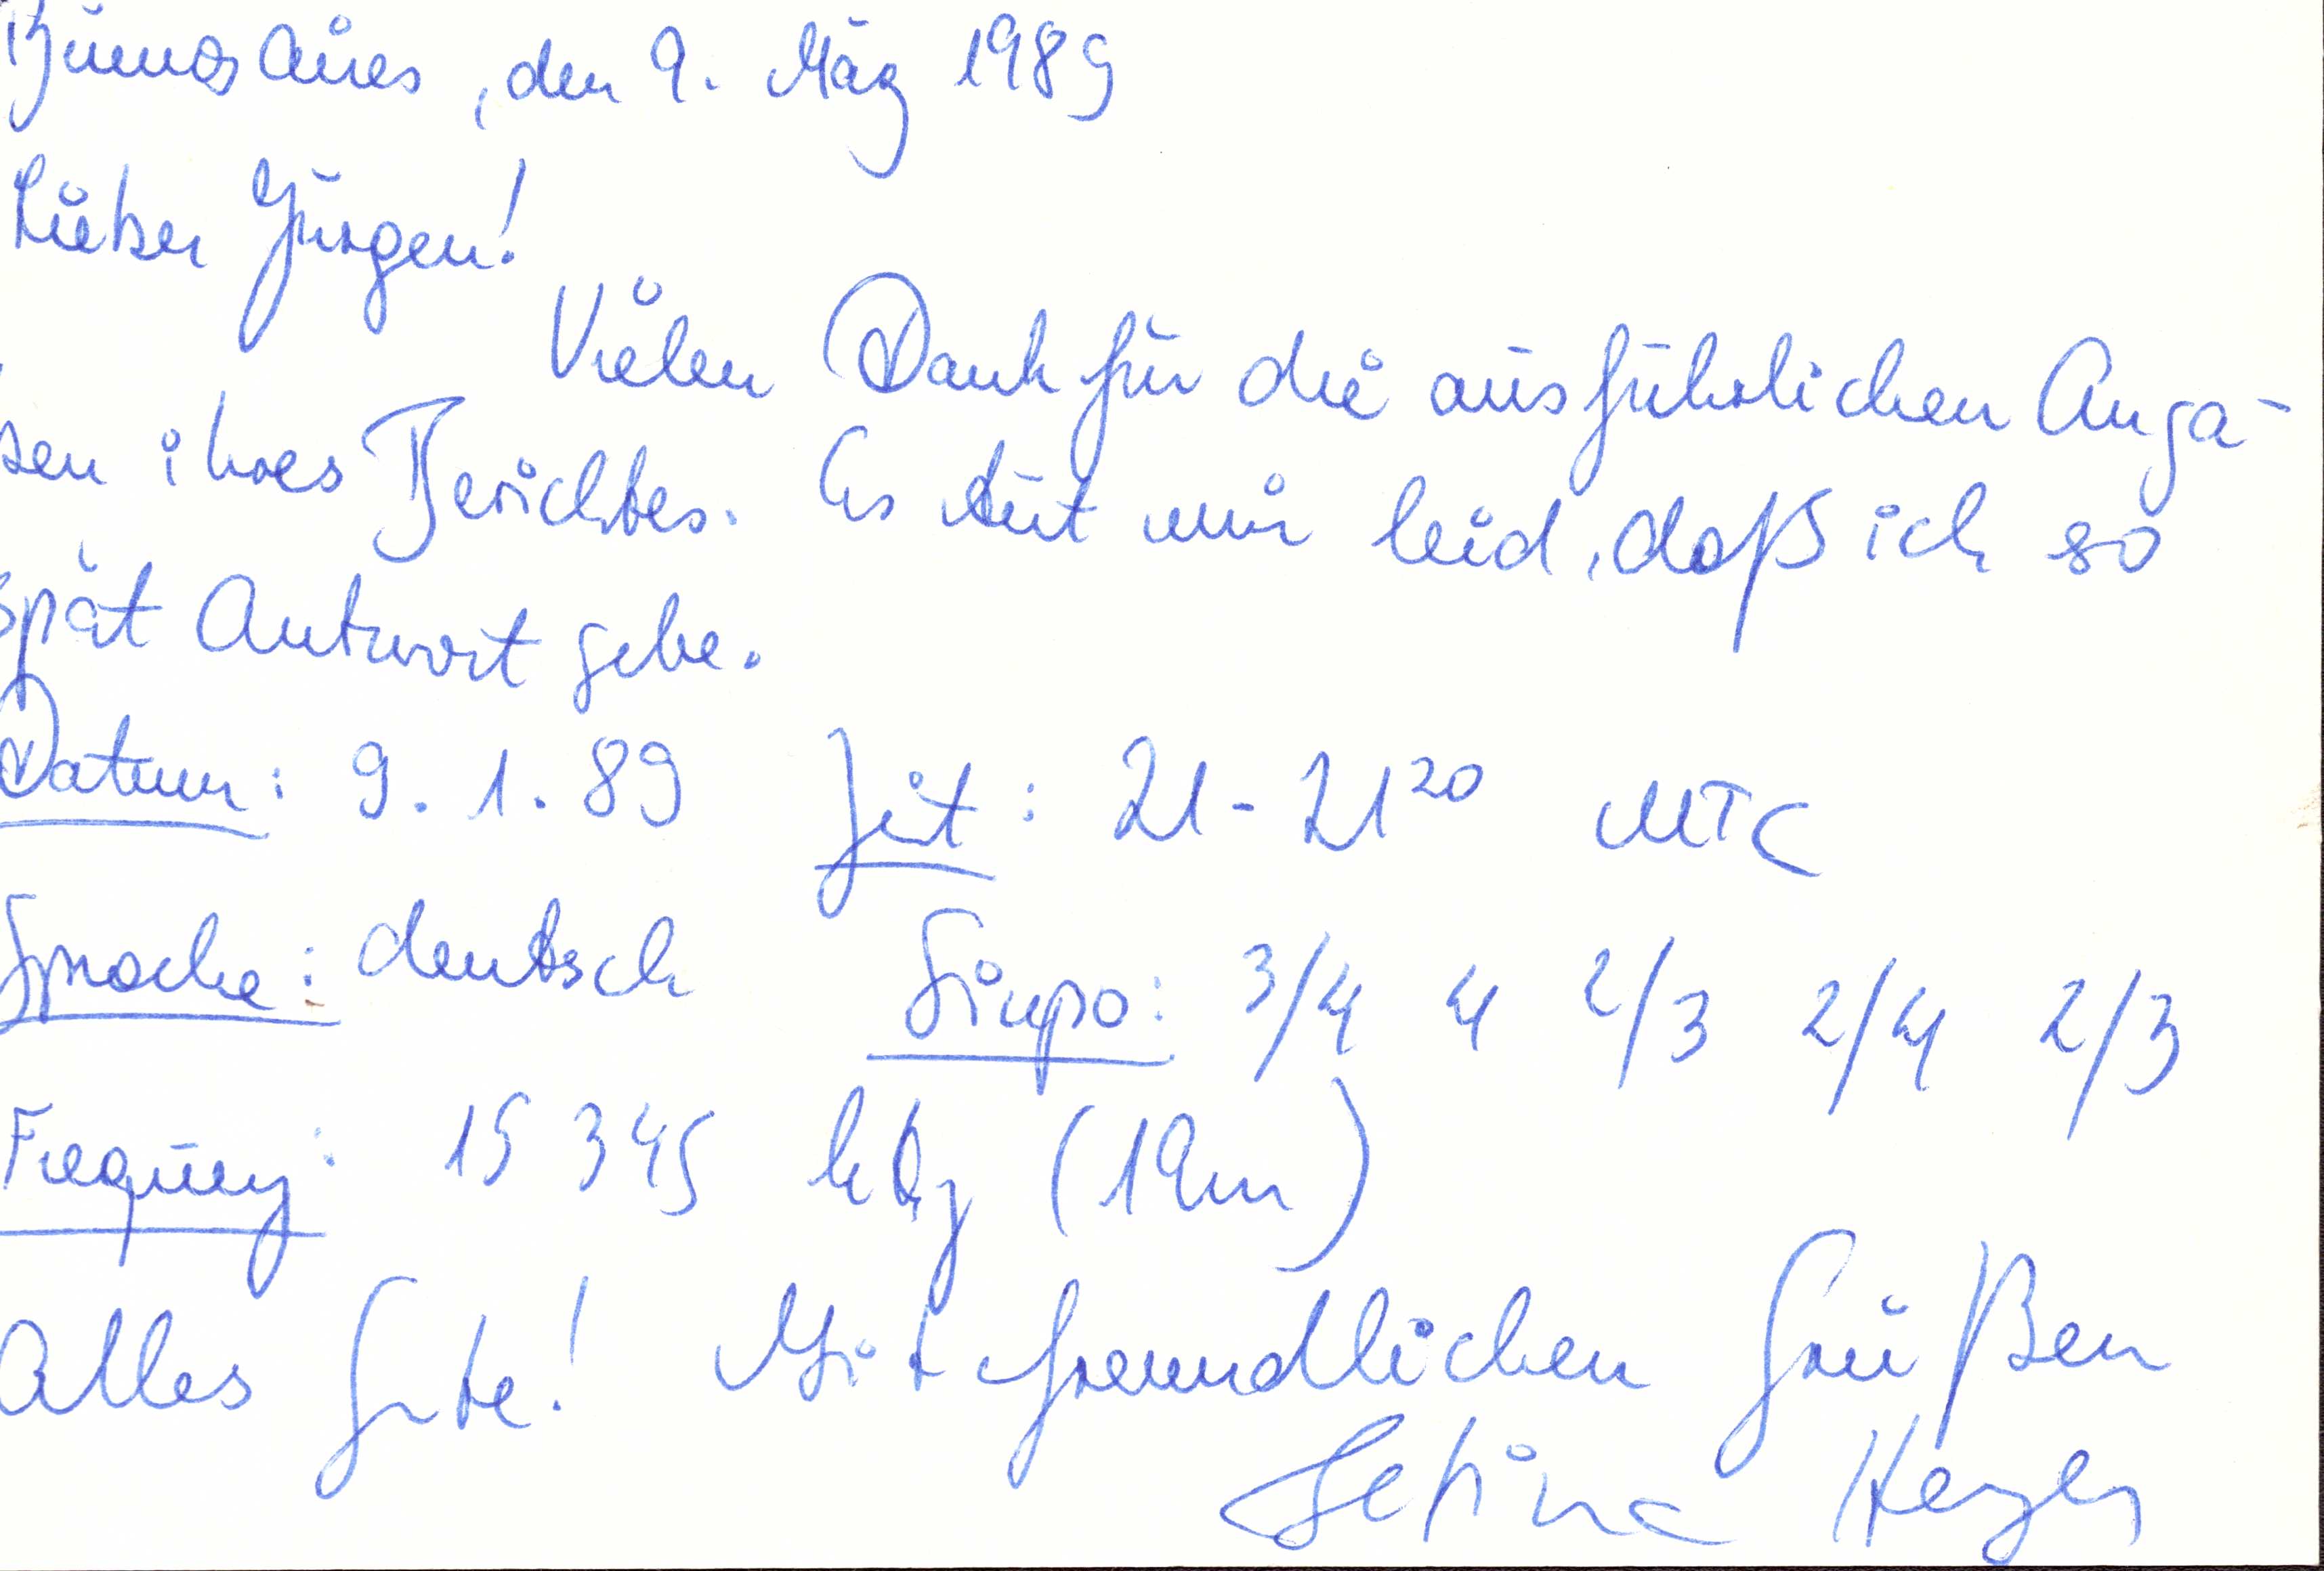 Buenos Aires, den 9. März 1989
Lieber Jürgen!
Vielen Dank für die ausführlichen Anga-
ben ihres Berichtes. Es tut mir leid, daß ich so
spät Antwort gebe.
Datum: 9. 1. 89 Zeit: 21 - 21²⁰ UTC
Sprache: deutsch Sinpo: 3/4 4 2/3 2/4 2/3
Frequenz: 15 345 kHz (19m)
Alles Gute! Mit freundlichen Grüßen